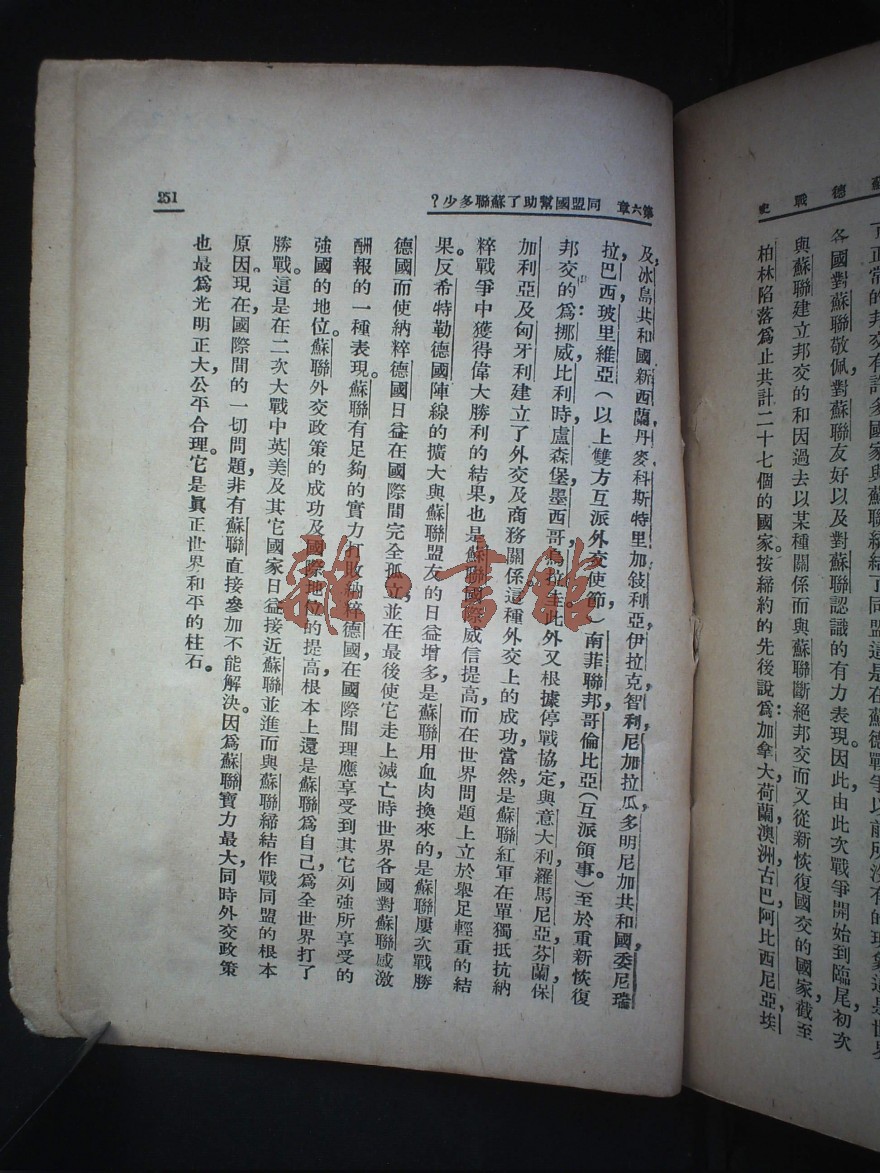 蘇德戰史
了正常的邦交有許多國家與蘇聯締結了同盟這是在蘇德戰爭以前所沒有的現象這是世界
各國對蘇聯敬佩,對蘇聯友好以及對蘇聯認識的有力表現。因此由此次戰爭開始到臨尾初次
與蘇聯建立邦交的和因過去以某種關係而與蘇聯斷絕邦交而又從新恢復國交的國家,截至
柏林陷落爲止共計二十七個的國家。按締約的先後說爲:加拿大,荷蘭,澳洲,古巴,阿比西尼亞,埃
第六章 同盟國幫助了蘇聯多少?
251
及,冰島共和國,新西蘭,丹麥,科斯特里加,敍利亞,伊拉克,智利,尼加拉瓜,多明尼加共和國,委尼瑞
拉,巴西,玻里維亞(以上雙方互派外交使節)南菲聯邦,哥倫比亞(互派領事)。至於重新恢復
邦交的爲:挪威,比利時,盧森堡,墨西哥,烏拉圭。此外又根據停戰協定與意大利,羅馬尼亞,芬蘭,保
加利亞及匈牙利建立了外交及商務關係。這種外交上的成功,當然是蘇聯紅軍在單獨抵抗納
粹戰爭中獲得偉大勝利的結果,也是蘇聯國際威信提高,而在世界問題上立於舉足輕重的結
果。反希特勒德國陣線的擴大與蘇聯盟友的日益增多,是蘇聯用血肉換來的,是蘇聯屢次戰勝
德國而使納粹德國日益在國際間完全孤立,並在最後使它走上滅亡時世界各國對蘇聯感激
酬報的一種表現。蘇聯有足夠的實力打敗納粹德國,在國際間理應享受到其它列強所享受的
強國的地位。蘇聯外交政策的成功及國際地位的提高根本上還是蘇聯爲自己,爲全世界打了
勝戰。這是在二次大戰中英美及其它國家日益接近蘇聯並進而與蘇聯締結作戰同盟的根本
原因。現在國際間的一切問題,非有蘇聯直接參加不能解決。因爲蘇聯實力最大,同時外交政策
也最爲光明正大,公平合理。它是眞正世界和平的柱石。
雜·書館